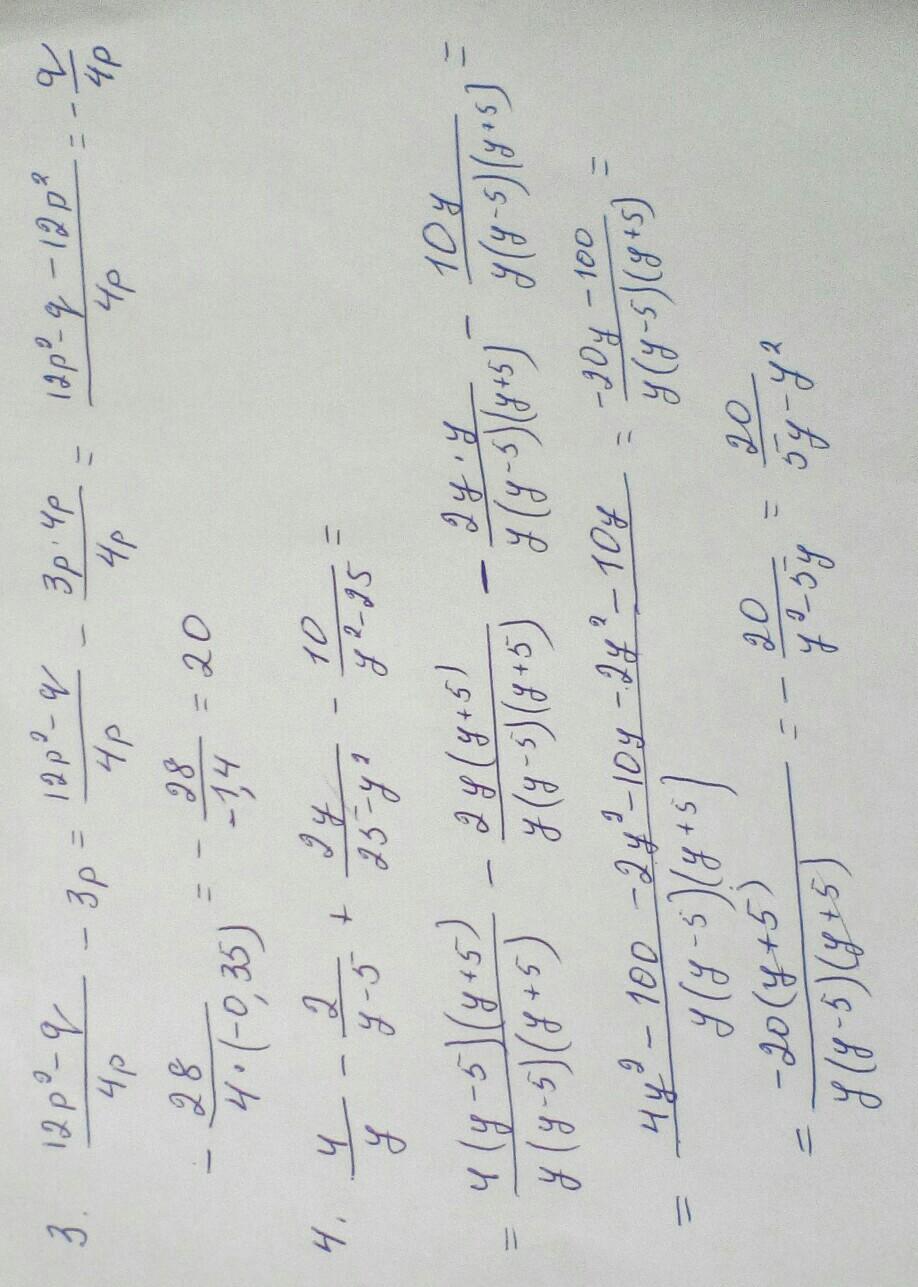 3. (12p²-q)/(4p) - 3p = (12p²-q)/(4p) - (3p·4p)/(4p) = (12p²-q-12p²)/(4p) = -q/(4p)
-28/(4·(-0,35)) = -28/(-1,4) = 20
4. 4/y - 2/(y-5) + 2y/(25-y²) - 10/(y²-25) =
= (4(y-5)(y+5))/(y(y-5)(y+5)) - (2y(y+5))/(y(y-5)(y+5)) - (2y·y)/(y(y-5)(y+5)) - (10y)/(y(y-5)(y+5)) =
= (4y²-100-2y²-10y-2y²-10y)/(y(y-5)(y+5)) = (-20y-100)/(y(y-5)(y+5)) =
= (-20(y+5))/(y(y-5)(y+5)) = -20/(y²-5y) = 20/(5y-y²)